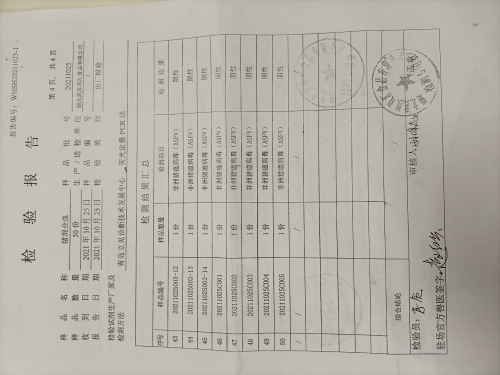 报告编号：WHSH20211025-1
检 验 报 告
第 4 页，共 4 页
样 品 名 称 猪混合血 样 品 批 号 20211025
样 品 数 量 50份 生产/送检单位
收 到 日 期 2021年10月25日 样 品 编 号
报 告 日 期 2021年10月25日 检 验 类 别 出厂检验
检验试剂生产厂家及
检测方法
青岛立见诊断技术发展中心 荧光定量PCR法
检测结果汇总
序号 样品编号 样品数量 检测项目 检测结果
43 20211025003-12 1份 非洲猪瘟病毒（ASFV） 阴性
44 20211025003-13 1份 非洲猪瘟病毒（ASFV） 阴性
45 20211025003-14 1份 非洲猪瘟病毒（ASFV） 阴性
46 20211025C001 1份 非洲猪瘟病毒（ASFV） 阴性
47 20211025C002 1份 非洲猪瘟病毒（ASFV） 阴性
48 20211025C003 1份 非洲猪瘟病毒（ASFV） 阴性
49 20211025C004 1份 非洲猪瘟病毒（ASFV） 阴性
50 20211025C005 1份 非洲猪瘟病毒（ASFV） 阴性
综合结论
检验员： 审核人：
驻场官方兽医签字：